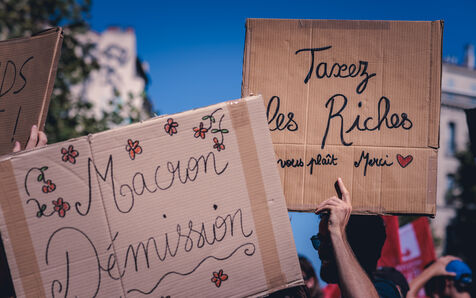 DS
!
Taxez
les Riches
vous plaît Merci
Macron
Démission